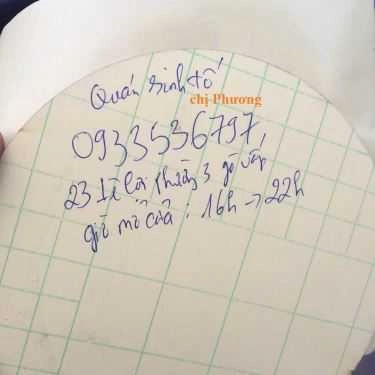 Quán sinh tố
chị Phương
0933536797,
23 Lê lợi phường 3 gò vấp
giờ mở cửa : 16h → 22h